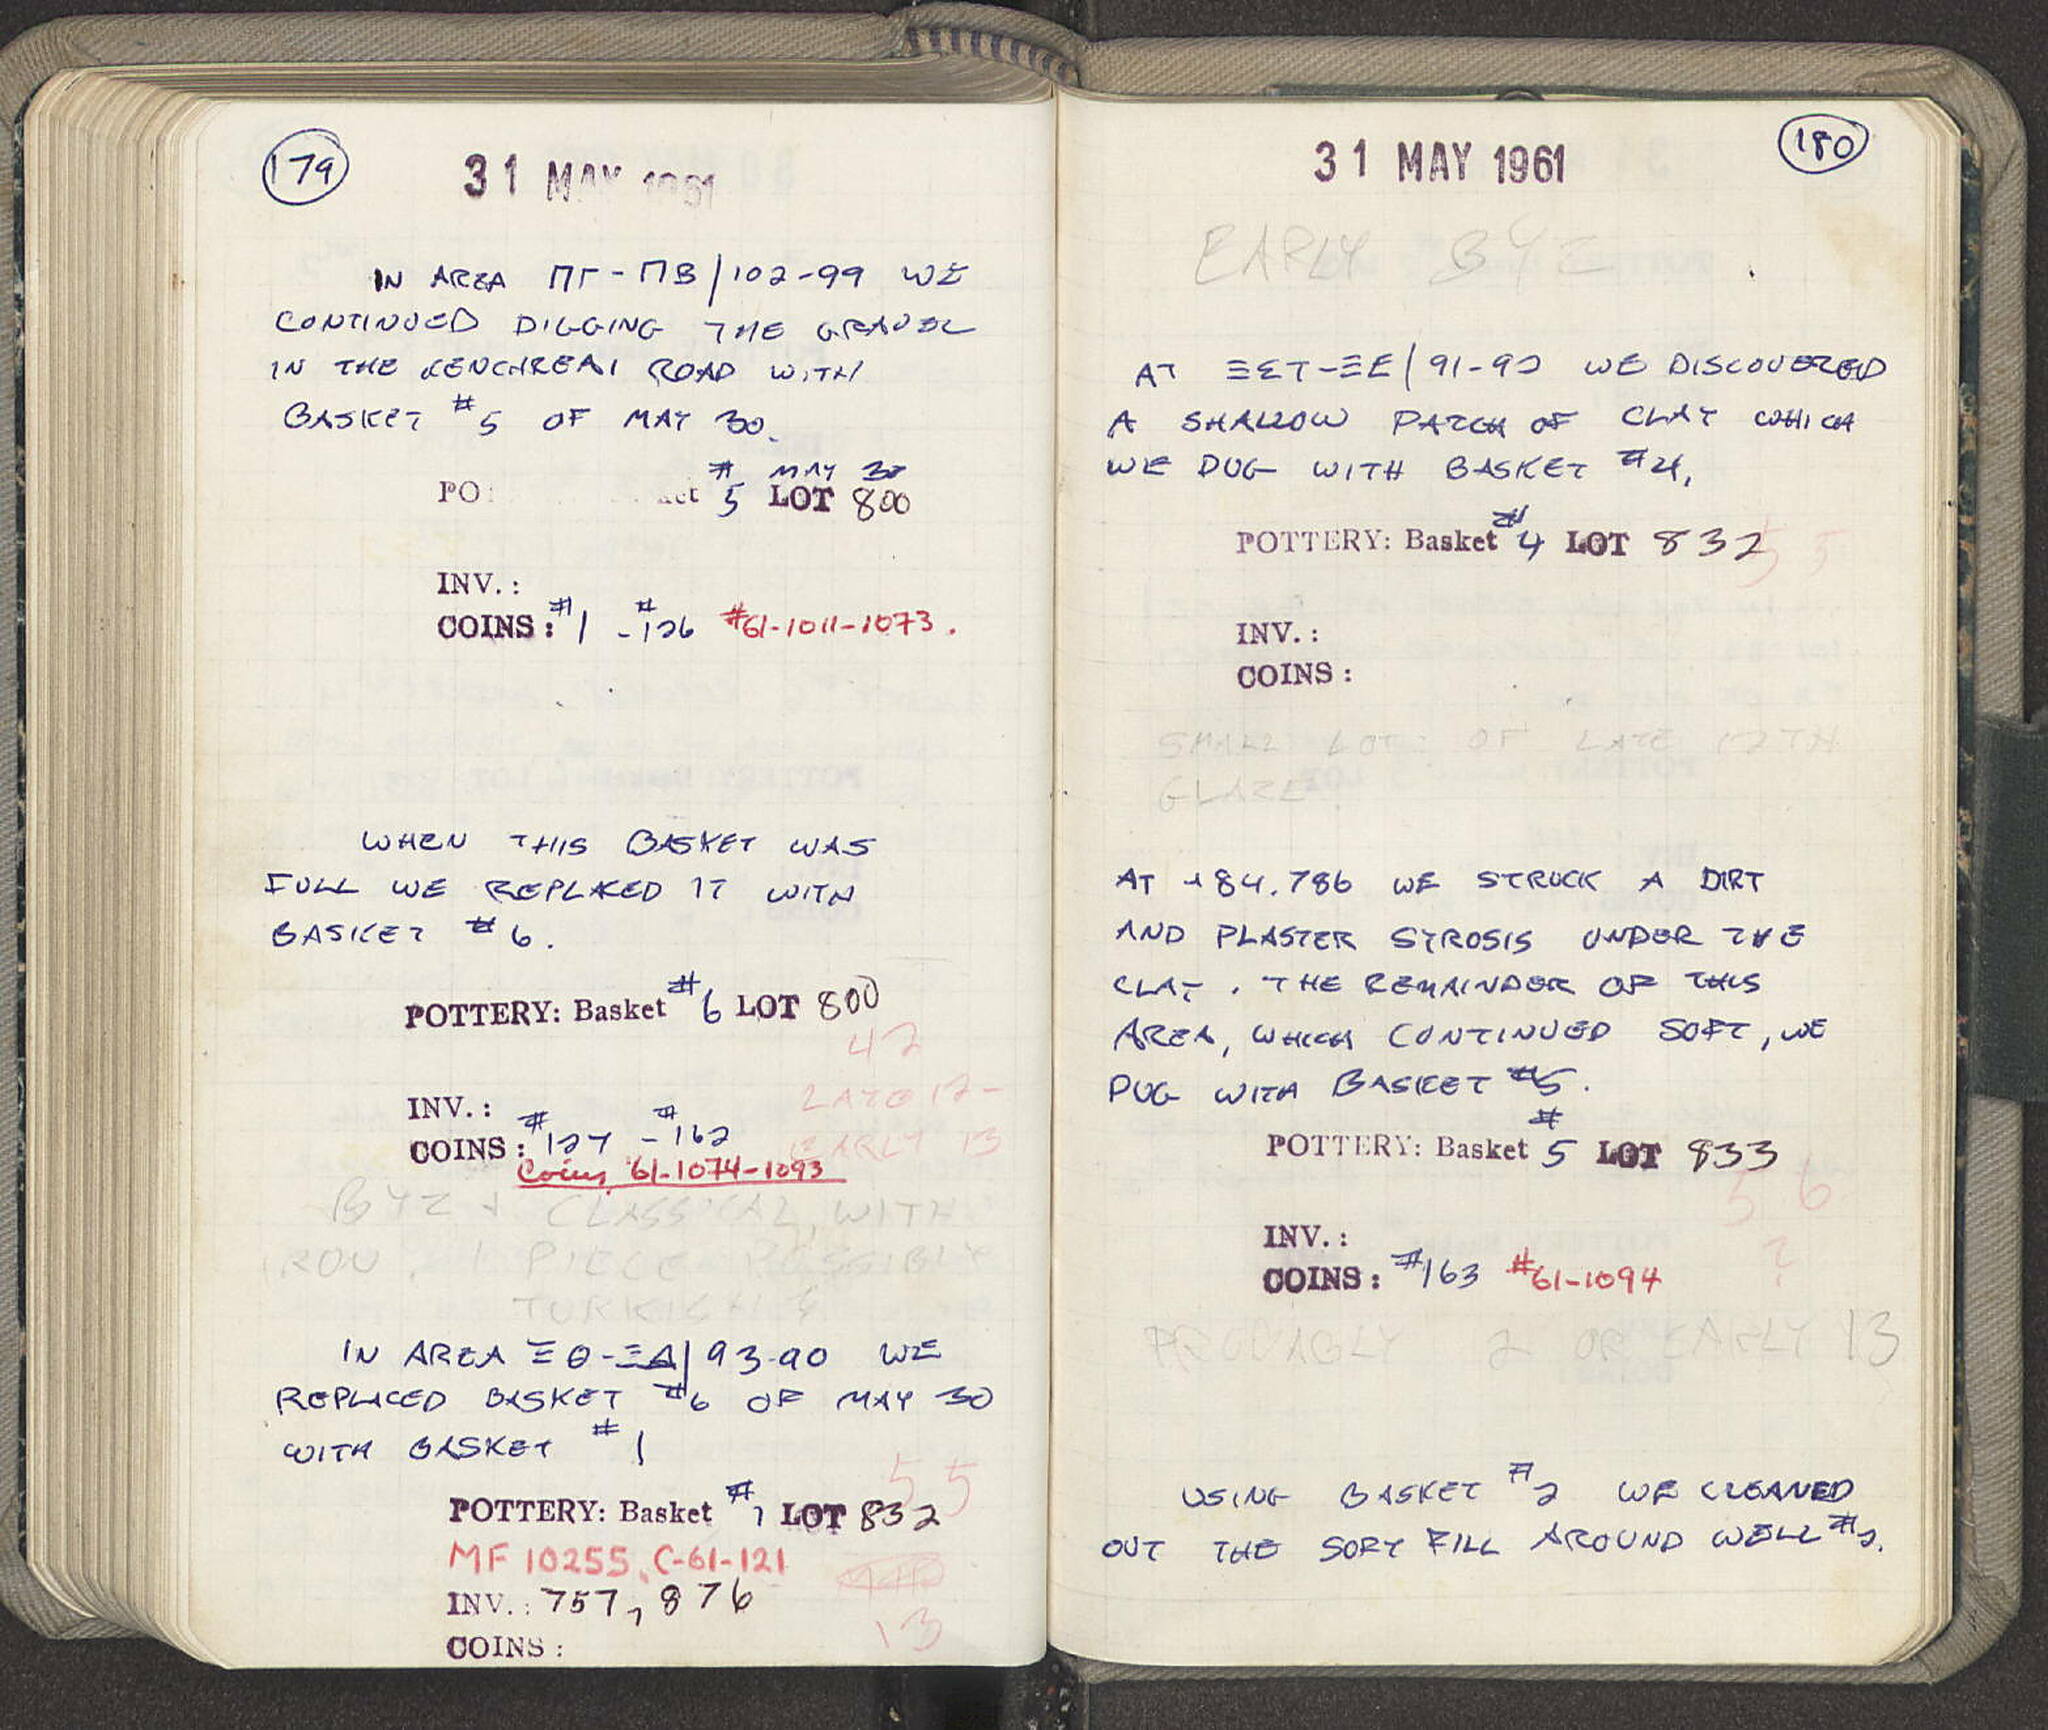 179
31 MAY 1961
IN AREA ΠΓ-ΠΒ/102-99 WE
CONTINUED DIGGING THE GRAVEL
IN THE KENCHREAI ROAD WITH
BASKET #5 OF MAY 30.
# MAY 30
5 LOT 800
INV.:
COINS: #1 - #126 #61-1011-1073.
WHEN THIS BASKET WAS
FULL WE REPLACED IT WITH
BASKET #6.
POTTERY: Basket #6 LOT 800
42
INV.: LATE 12-
COINS: #127 - #162 EARLY 13
Coins 61-1074-1093
BYZ + CLASSICAL, WITH
IRON, 1 PIECE POSSIBLY
TURKISH
IN AREA ΞΘ-ΞΔ/93-90 WE
REPLACED BASKET #6 OF MAY 30
WITH BASKET #1
55
POTTERY: Basket #1 LOT 832
MF 10255, C-61-121
INV.: 757, 876
13
COINS:
180
31 MAY 1961
EARLY BYZ
AT ΞΣΤ-ΞΕ/91-92 WE DISCOVERED
A SHALLOW PATCH OF CLAY WHICH
WE DUG WITH BASKET #4.
POTTERY: Basket #4 LOT 832 55
INV.:
COINS:
SMALL LOT OF LATE 12TH
GLAZE
AT +84.786 WE STRUCK A DIRT
AND PLASTER STROSIS UNDER THE
CLAY. THE REMAINDER OF THIS
AREA, WHICH CONTINUED SOFT, WE
DUG WITH BASKET #5.
POTTERY: Basket #5 LOT 833
56
INV.: ?
COINS: #163 #61-1094
PROBABLY 2 OR EARLY 13
USING BASKET #2 WE CLEANED
OUT THE SOFT FILL AROUND WELL #2.